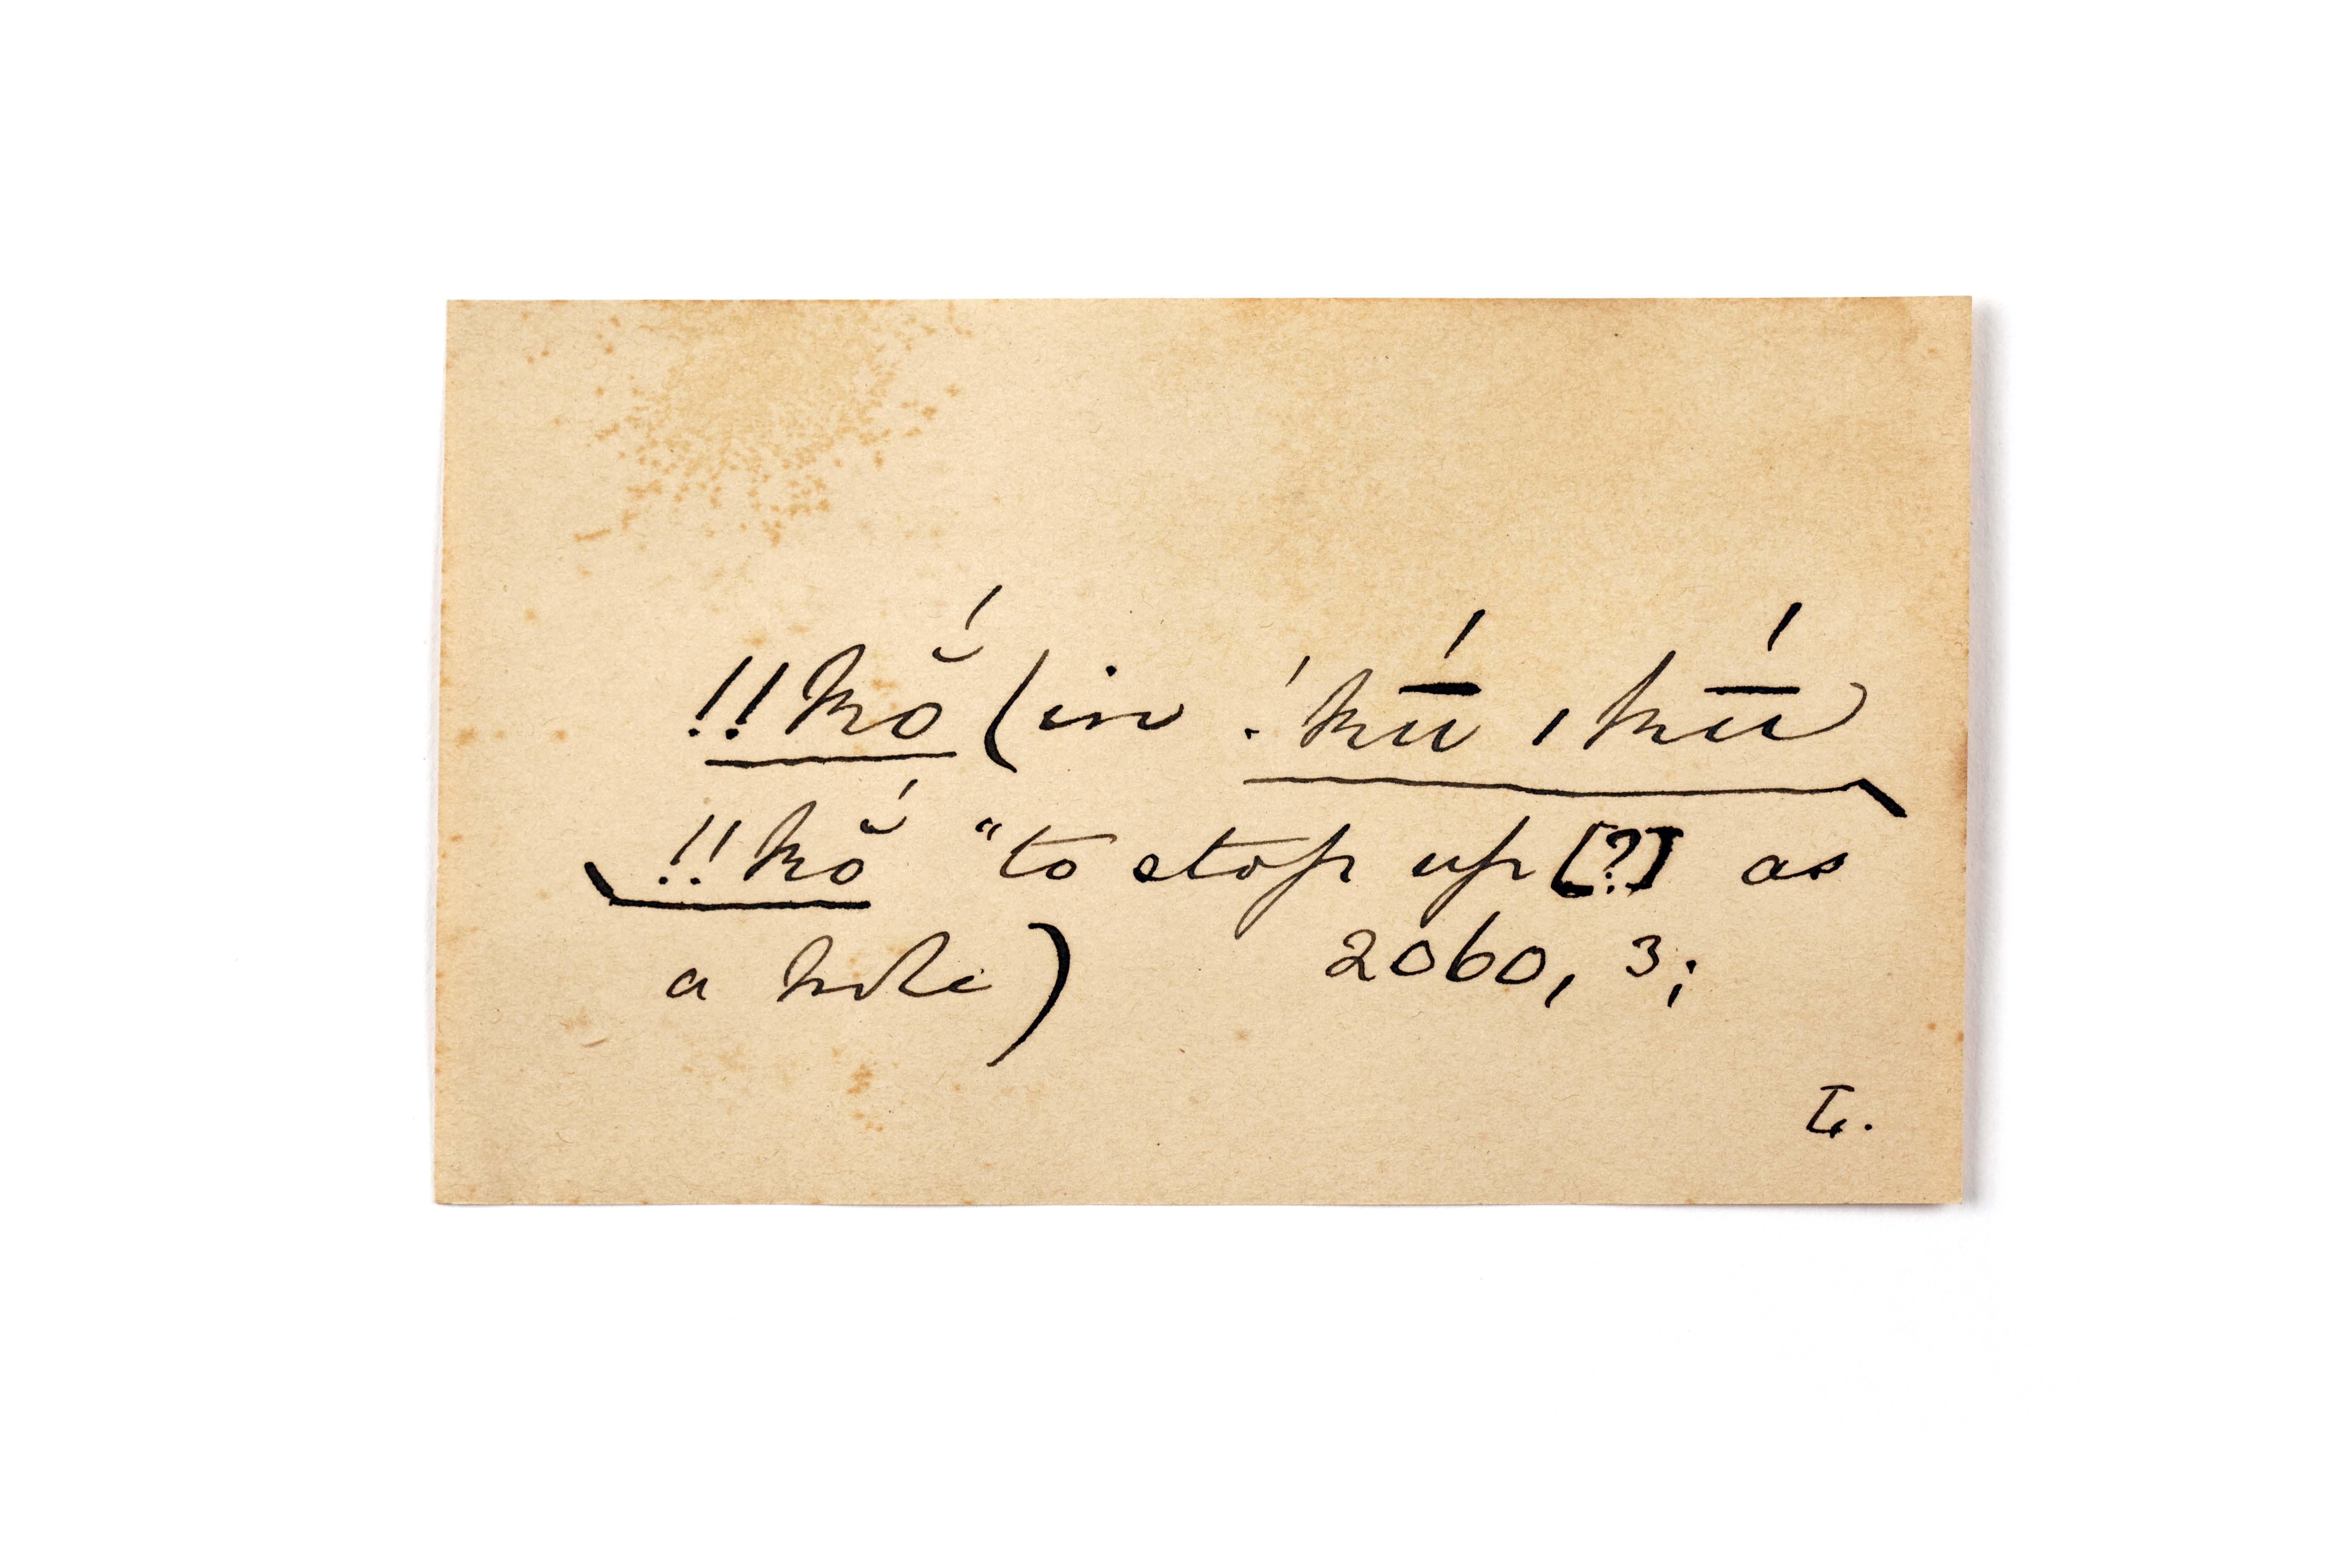 !!kŏ́ (in !kū́ ˌkū́
!!kŏ́ "to stop up [?] as
a hole) 2060, 3;
L.